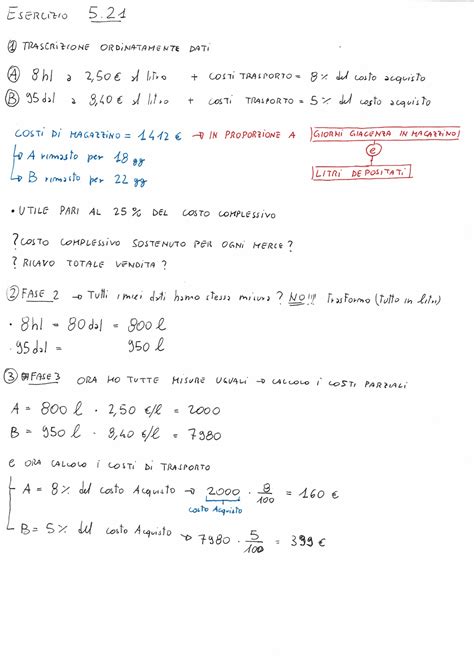 ESERCIZIO 5.21
① TRASCRIZIONE ORDINATAMENTE DATI
Ⓐ 8hl a 2,50€ al litro + COSTI TRASPORTO = 8% del costo acquisto
Ⓑ 95dal a 8,40€ al litro + COSTI TRASPORTO = 5% del costo acquisto
COSTI DI MAGAZZINO = 1412€ → IN PROPORZIONE A GIORNI GIACENZA IN MAGAZZINO
e
LITRI DEPOSITATI
→ A rimasto per 18 gg
→ B rimasto per 22 gg
• UTILE PARI AL 25% DEL COSTO COMPLESSIVO
? COSTO COMPLESSIVO SOSTENUTO PER OGNI MERCE?
? RICAVO TOTALE VENDITA?
② FASE 2 → Tutti i miei dati hanno stessa misura? NO!!! Trasformo (tutto in litri)
• 8hl = 80dal = 800l
• 95dal = 950l
③ FASE 3 ORA HO TUTTE MISURE UGUALI → CALCOLO I COSTI PARZIALI
A = 800l · 2,50 €/l = 2000
B = 950l · 8,40 €/l = 7980
E ORA CALCOLO I COSTI DI TRASPORTO
A = 8% del costo Acquisto → 2000 · 8/100 = 160€
costo Acquisto
B = 5% del costo Acquisto → 7980 · 5/100 = 399€